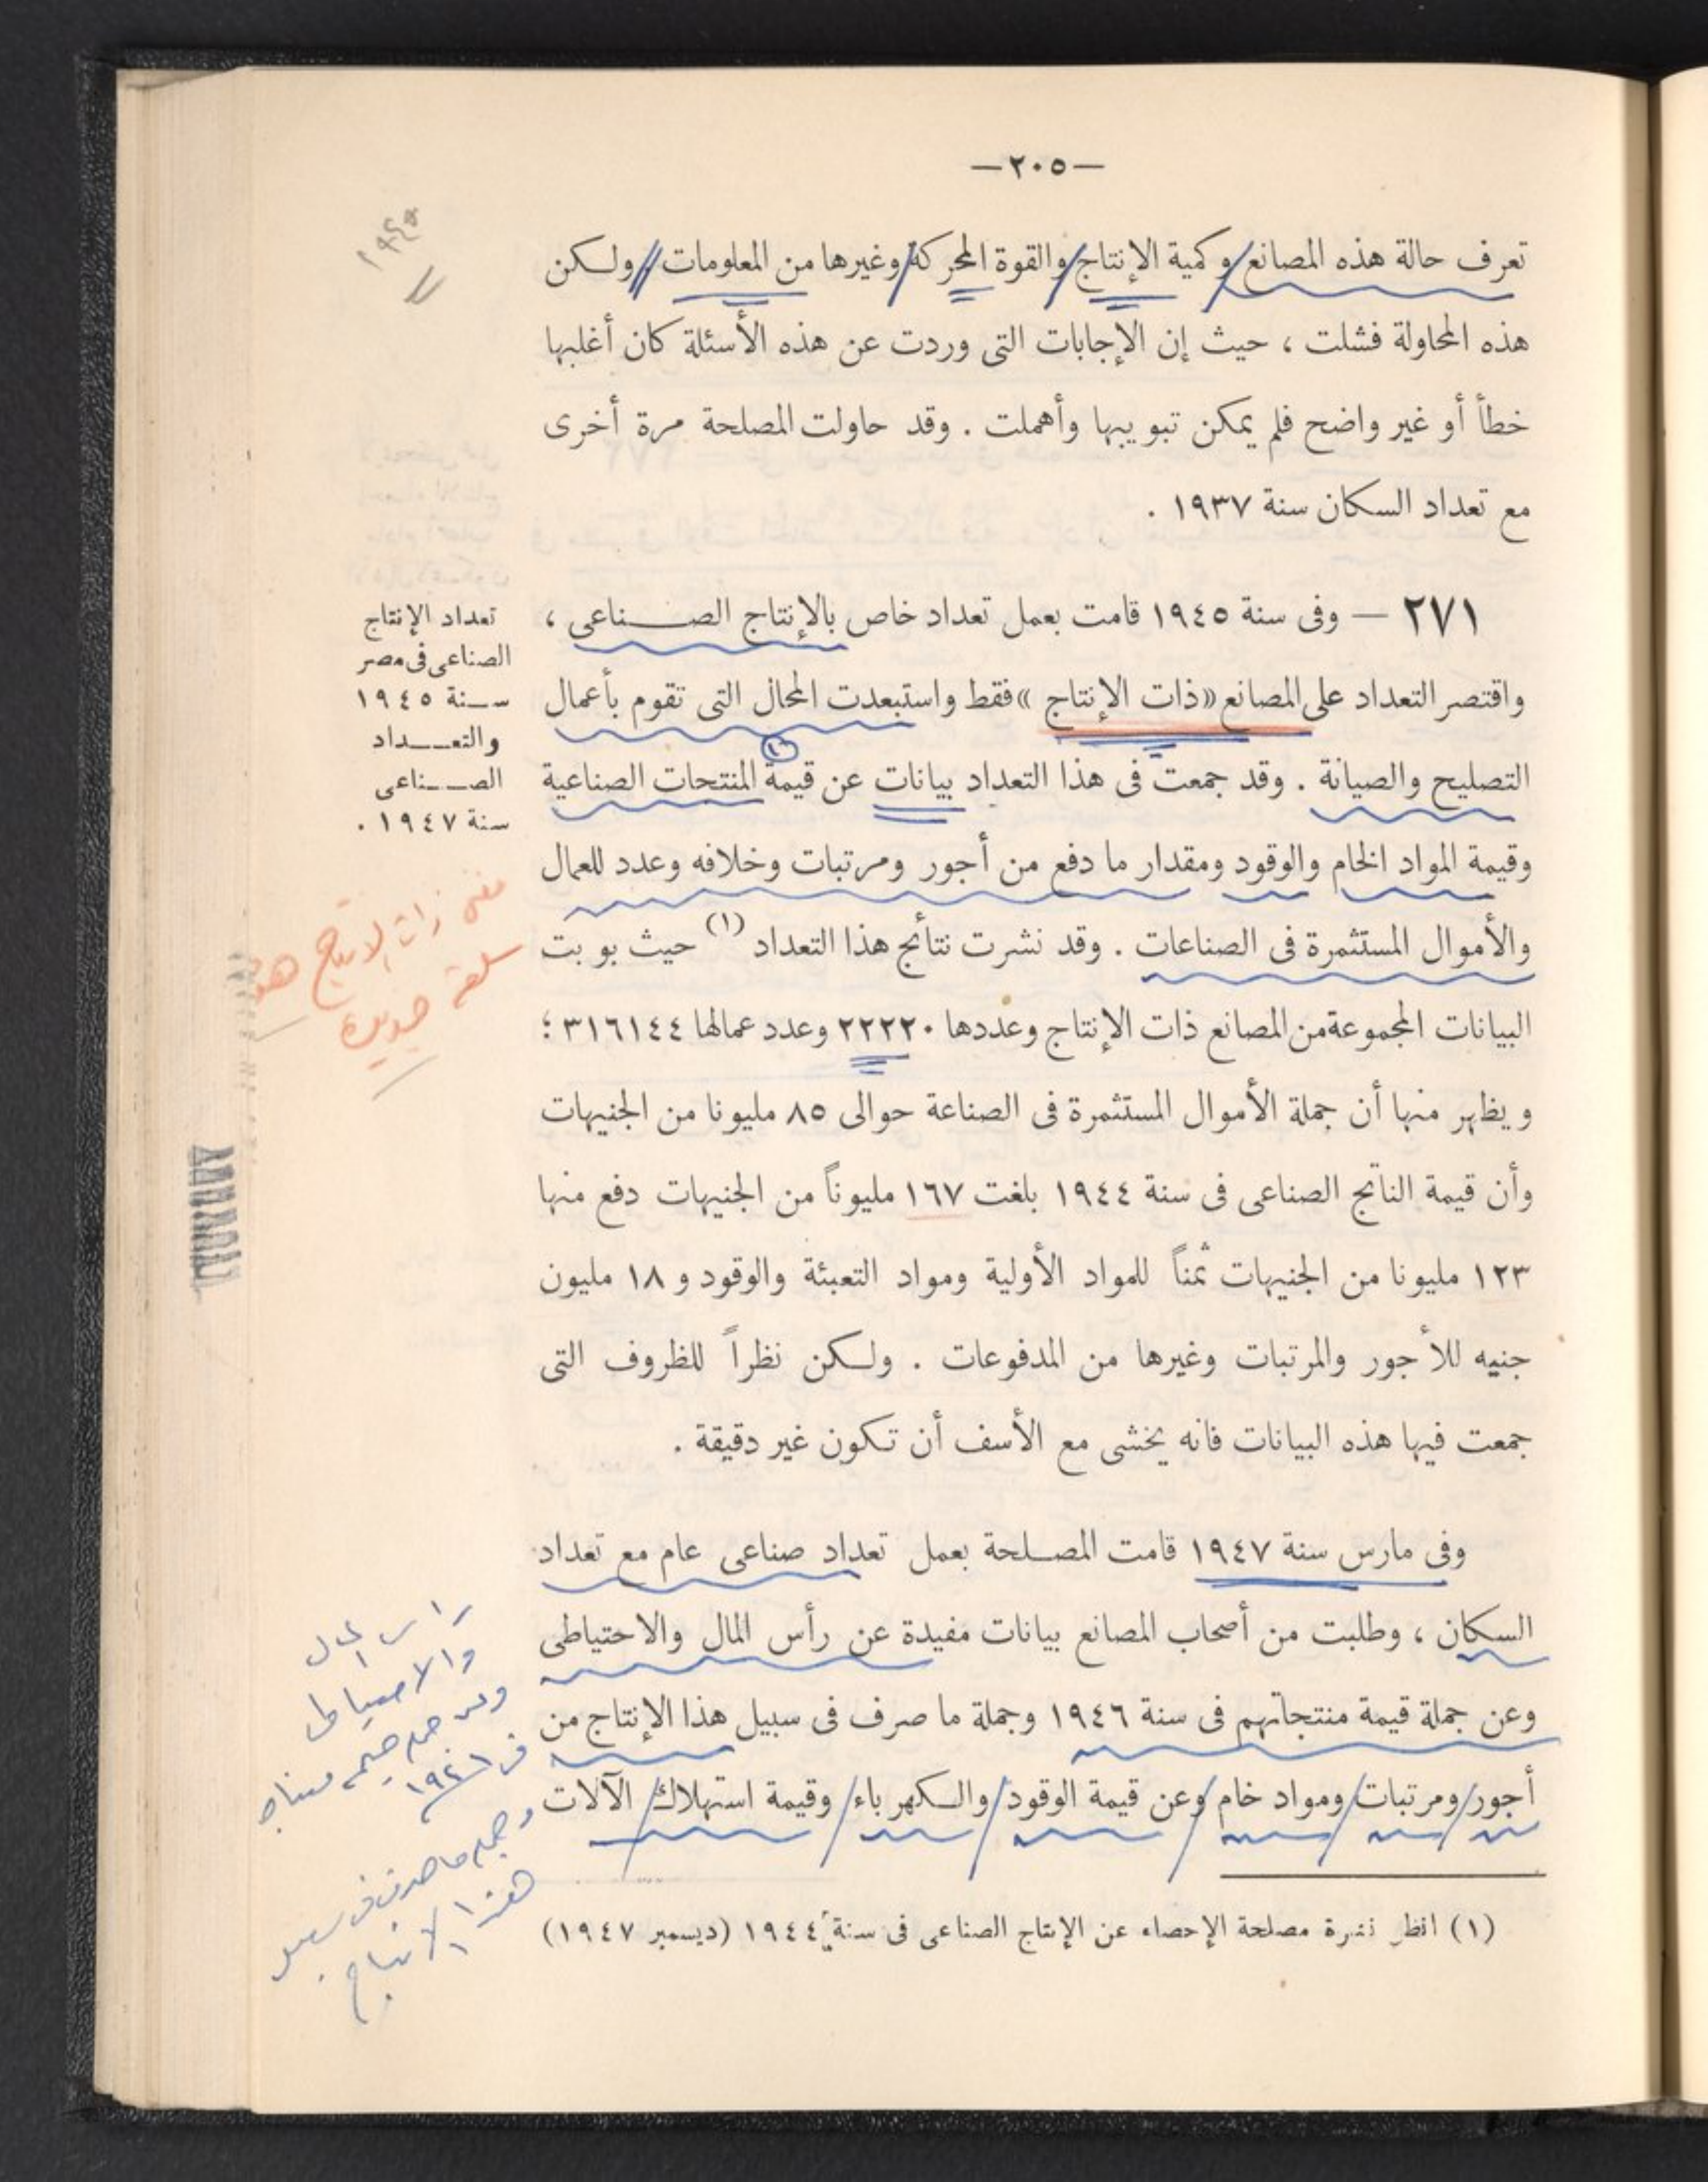 —٢٠٥—
١٩٤٥
تعرف حالة هذه المصانع وكمية الإنتاج والقوة المحركة وغيرها من المعلومات ، ولكن
هذه المحاولة فشلت ، حيث إن الإجابات التى وردت عن هذه الأسئلة كان أغلبها
خطأ أو غير واضح فلم يمكن تبويبها وأهملت . وقد حاولت المصلحة مرة أخرى
مع تعداد السكان سنة ١٩٣٧ .
٢٧١ — وفى سنة ١٩٤٥ قامت بعمل تعداد خاص بالإنتاج الصناعى ،
واقتصر التعداد على المصانع «ذات الإنتاج» فقط واستبعدت المحال التى تقوم بأعمال
التصليح والصيانة . وقد جمعت فى هذا التعداد بيانات عن قيمة المنتجات الصناعية
وقيمة المواد الخام والوقود ومقدار ما دفع من أجور ومرتبات وخلافه وعدد للعمال
والأموال المستثمرة فى الصناعات . وقد نشرت نتائج هذا التعداد (١) حيث بوبت
البيانات المجموعة من المصانع ذات الإنتاج وعددها ٢٢٢٢٠ وعدد عمالها ٣١٦١٤٤ ؛
ويظهر منها أن جملة الأموال المستثمرة فى الصناعة حوالى ٨٥ مليونا من الجنيهات
وأن قيمة الناتج الصناعى فى سنة ١٩٤٤ بلغت ١٦٧ مليوناً من الجنيهات دفع منها
١٢٣ مليونا من الجنيهات ثمناً للمواد الأولية ومواد التعبئة والوقود و ١٨ مليون
جنيه للأجور والمرتبات وغيرها من المدفوعات . ولكن نظراً للظروف التى
جمعت فيها هذه البيانات فانه يخشى مع الأسف أن تكون غير دقيقة .
وفى مارس سنة ١٩٤٧ قامت المصلحة بعمل تعداد صناعى عام مع تعداد
السكان ، وطلبت من أصحاب المصانع بيانات مفيدة عن رأس المال والاحتياطى
وعن جملة قيمة منتجاتهم فى سنة ١٩٤٦ وجملة ما صرف فى سبيل هذا الإنتاج من
أجور ومرتبات ومواد خام وعن قيمة الوقود والكهرباء وقيمة استهلاك الآلات
تعداد الإنتاج
الصناعى فى مصر
سنة ١٩٤٥
والتعداد
الصناعى
سنة ١٩٤٧ .
ذات الانتاج هو
سلعة جديدة
راس المال
والاحتياطى
جملة قيمة
فى ١٩٤٦
وجملة ما صرف فى سبيل
هذا الانتاج
(١) انظر نشرة مصلحة الإحصاء عن الإنتاج الصناعى فى سنة ١٩٤٤ (ديسمبر ١٩٤٧)